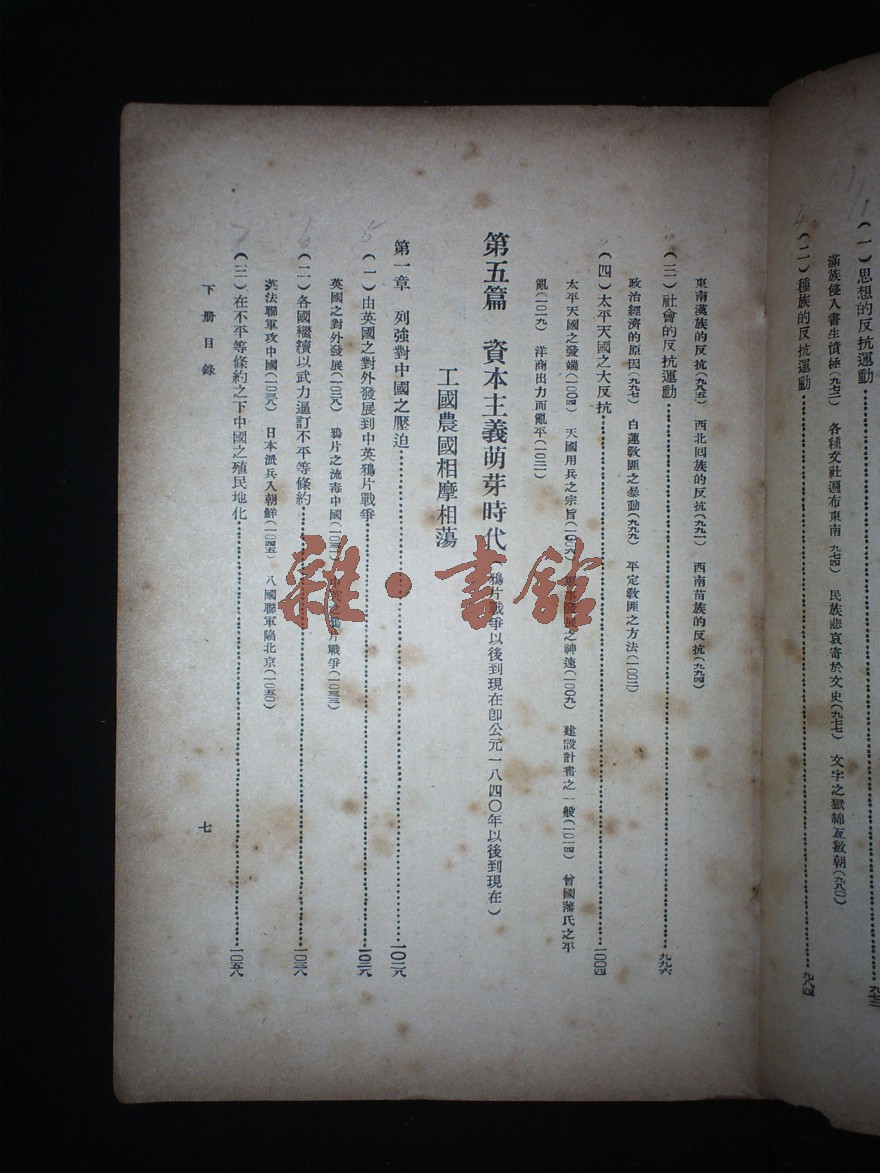 （一）思想的反抗運動
滿族侵入書生憤極（九七二） 各種文社遍布東南 九七四） 民族悲哀寄於文史（九七七） 文字之獄綿亙數朝（九八〇）
（二）種族的反抗運動 九八四
東南漢族的反抗（九八五） 西北回族的反抗（九九一） 西南苗族的反抗（九九四）
（三）社會的反抗運動 九九六
政治經濟的原因（九九七） 白蓮教匪之暴動（九九九） 平定教匪之方法（一〇〇二）
（四）太平天國之大反抗 一〇〇四
太平天國之發端（一〇〇四） 天國用兵之宗旨（一〇〇六） 之神速（一〇〇九） 建設計畫之一般（一〇一四） 曾國藩氏之平
亂（一〇二九） 洋商出力而亂平（一〇二一）
第五篇 資本主義萌芽時代（鴉片戰爭以後到現在卽公元一八四〇年以後到現在）
工國農國相摩相蕩
第一章 列強對中國之壓迫 一〇二九
（一）由英國之對外發展到中英鴉片戰爭 一〇二九
英國之對外發展（一〇二九） 鴉片之流毒中國（一〇三一） 片戰爭（一〇三三）
（二）各國繼續以武力逼訂不平等條約 一〇三八
英法聯軍攻中國（一〇三八） 日本派兵入朝鮮（一〇四五） 八國聯軍陷北京（一〇五〇）
（三）在不平等條約之下中國之殖民地化 一〇五八
下册目錄
七
雜·書館